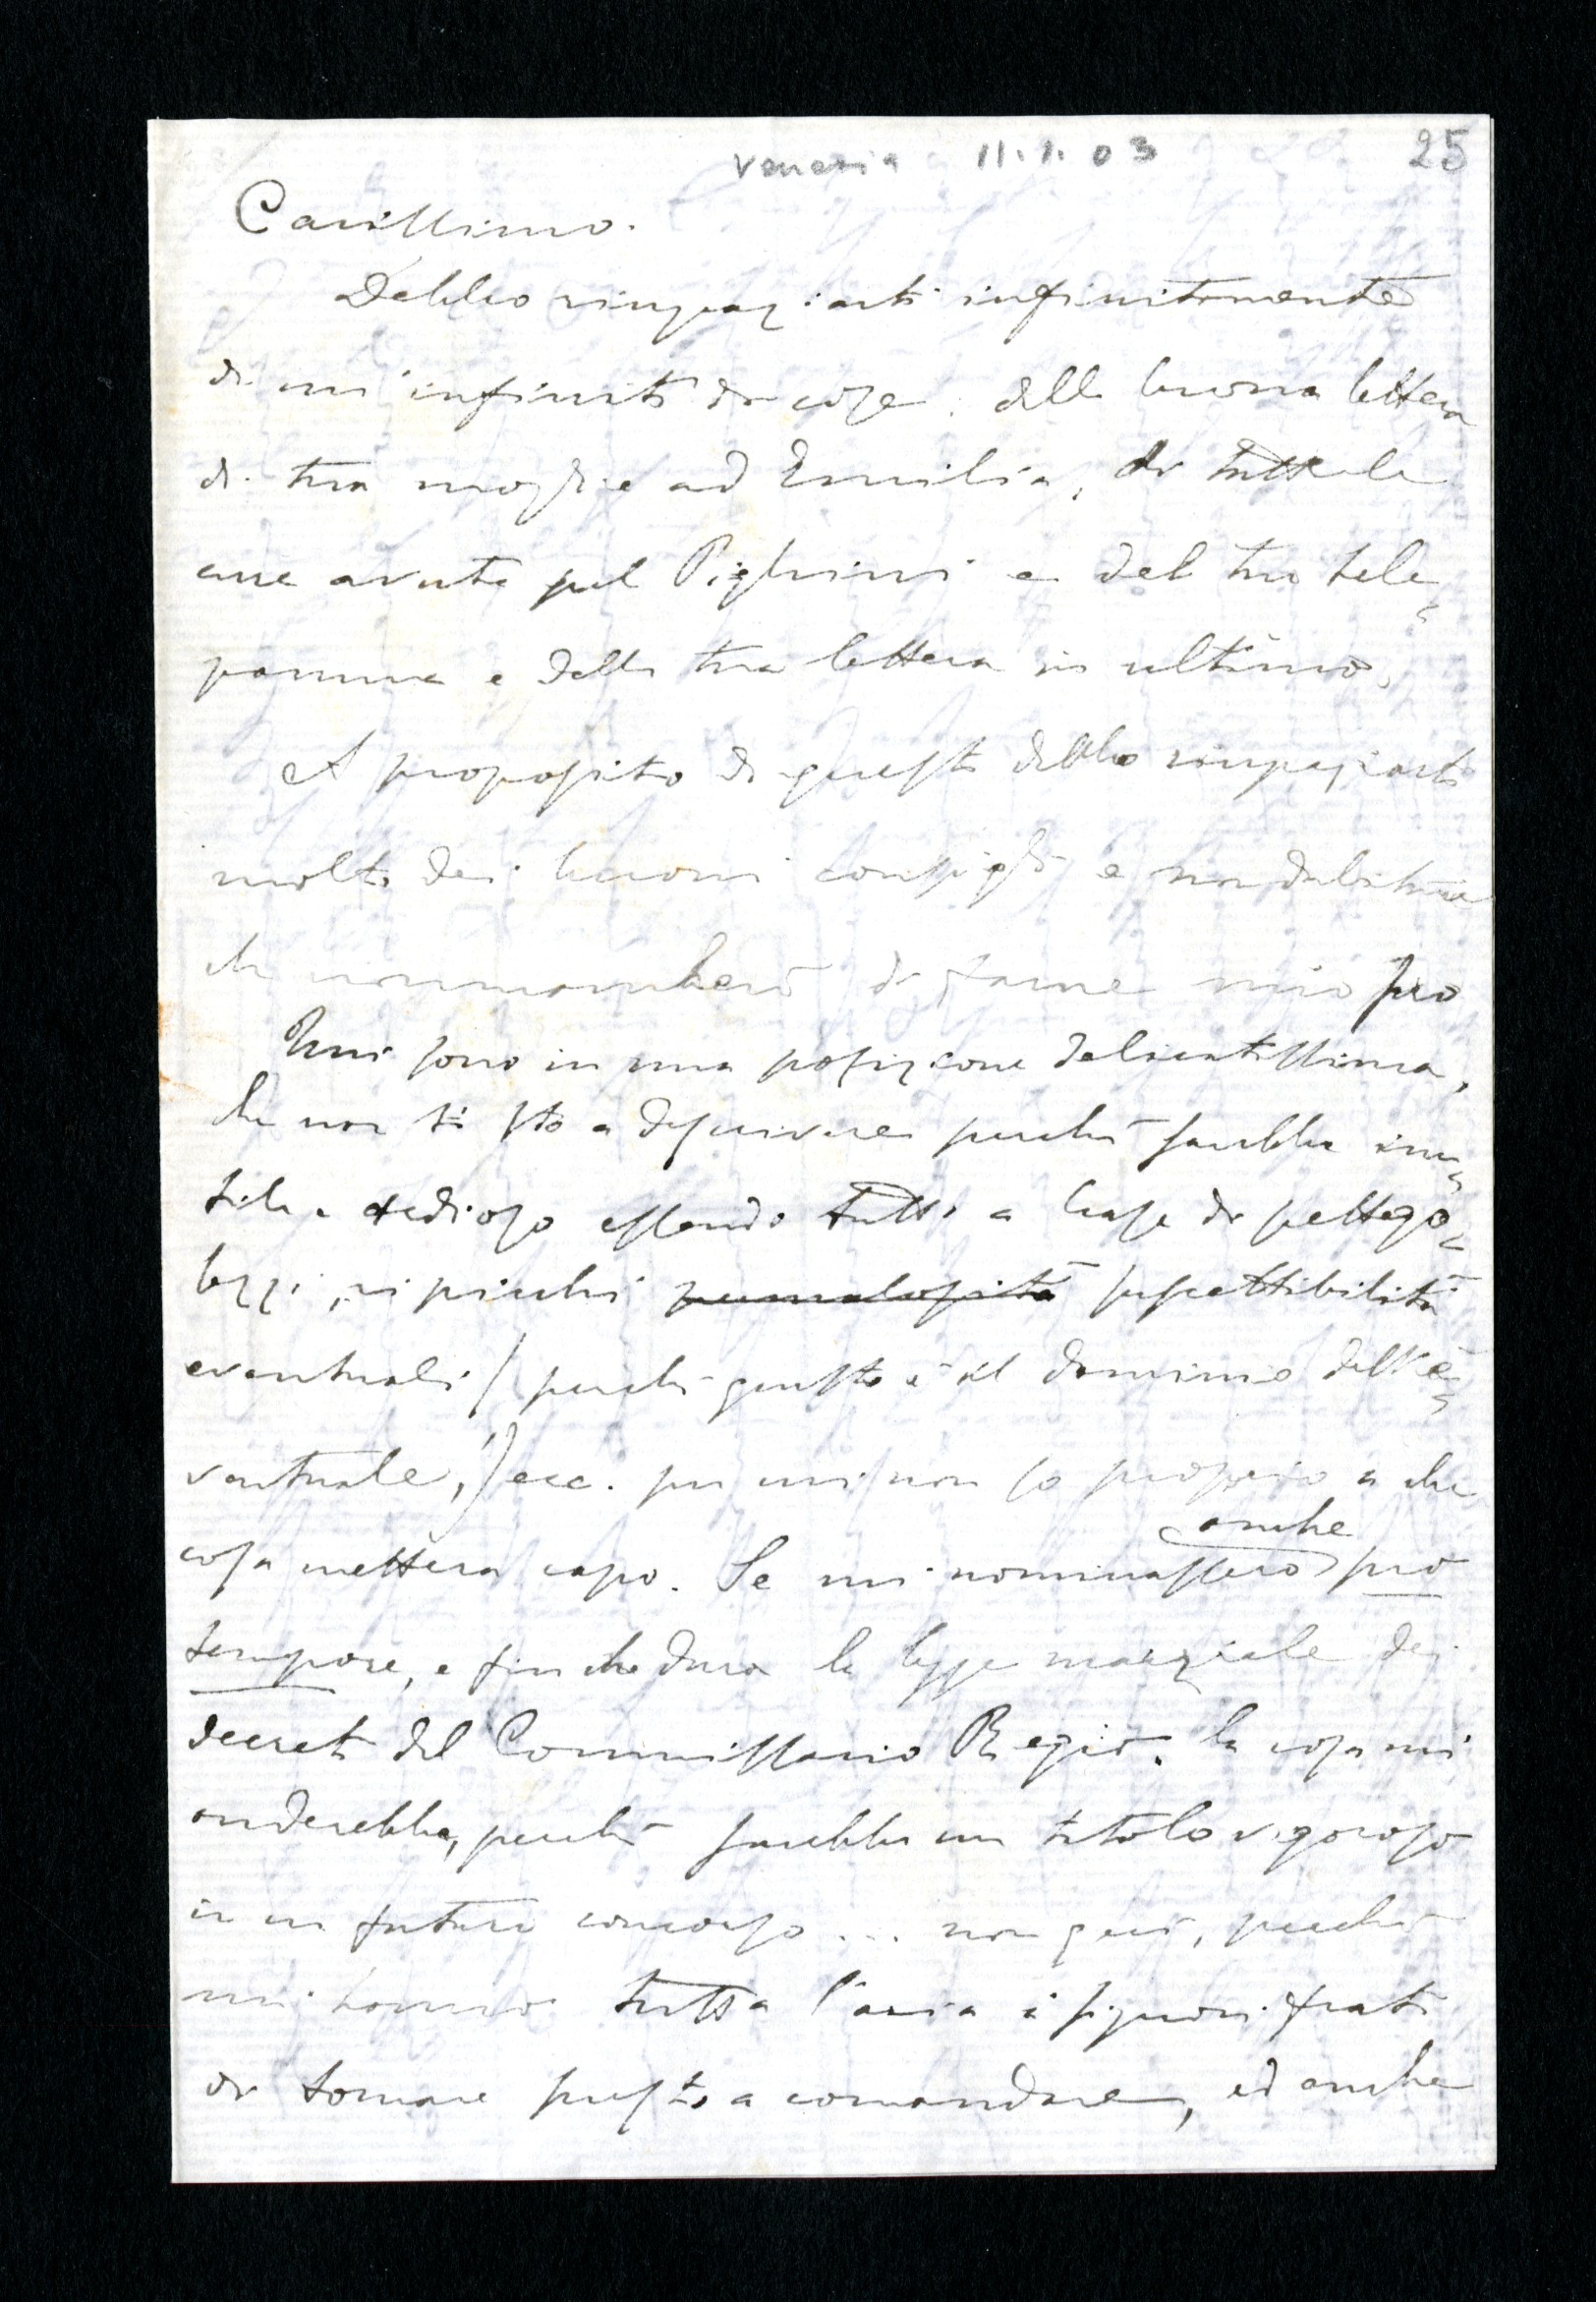 Venezia 11.1.03
25
Carissimo.
Debbo ringraziarti infinitamente
di un'infinità di cose: della buona lettera
di tua moglie ad Emilia, di tutte le
cure avute pel Pighini e del tuo tele=
gramma e della tua lettera in ultimo.
A proposito di questa debbo ringraziarti
molto dei buoni consigli e non dubitare
che non mancherò di farne mio pro
Qui sono in una posizione delicatissima,
che non ti sto a descrivere perchè sarebbe inu=
tile e tedioso essendo tutto a base di pettego=
lezzi, ripicchi suscettibilità
eventuali (perchè questo è il dominio dell'e=
ventuale!) ecc. per cui non so proprio a che
cosa metterà capo. Se mi nominassero anche pro
tempore, e finchè dura la legge marziale dei
decreti del Commissario Regio, la cosa mi
anderebbe, perchè sarebbe un titolo vigoroso
in un futuro concorso ... non già, perchè
mi hanno tutta l'aria i signori frati
di tornare presto a comandare, ed anche